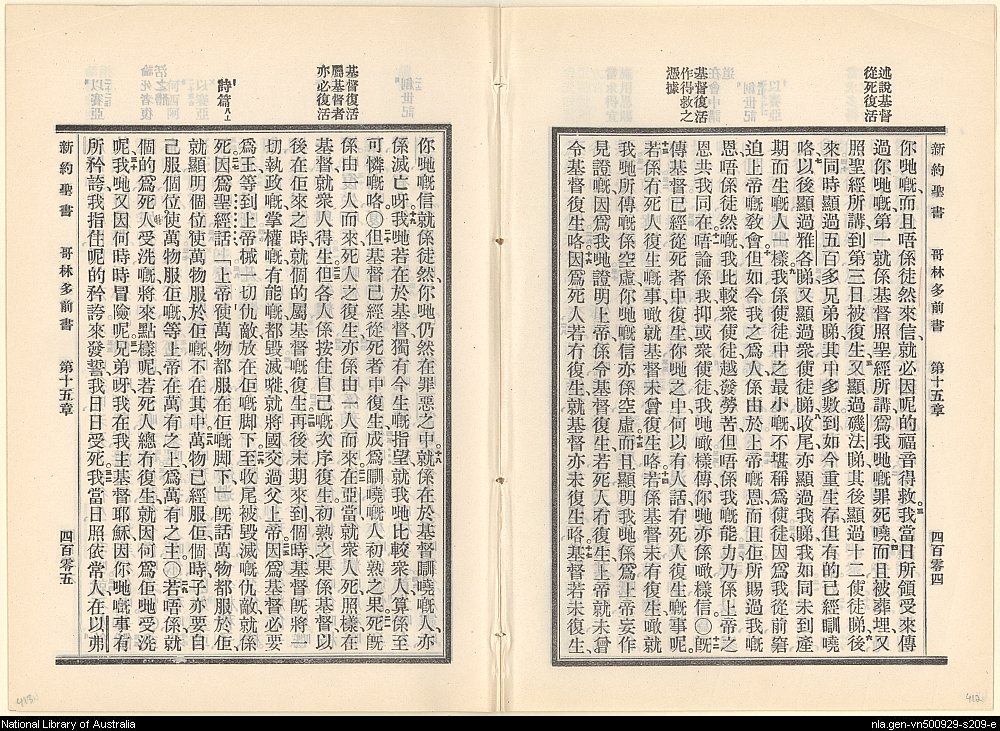 述說基督
從死復活
基督復活
作得救之
憑據
新約聖書 哥林多前書 第十五章 四百零四
你哋嘅、而且唔係徒然來信、就必因呢的福音得救。我當日所領受來傳
過你哋嘅、第一就係基督照聖經所講、爲我哋嘅罪死嘵、而且被葬埋、又
照聖經所講到第三日被復生、又顯過磯法睇、其後顯過十二使徒睇、後
來同時顯過五百多兄弟睇、其中多數到如今重生存、但有的已經瞓嘵
咯、以後顯過雅各睇、又顯過衆使徒睇、收尾亦顯過我睇、我如同未到產
期而生嘅人一樣。我係使徒中之最小嘅、不堪稱爲使徒、因爲我從前窘
迫上帝嘅教會、但如今我之爲人、係由於上帝嘅恩、而且佢所賜過我嘅
恩、唔係徒然嘅、我比較衆使徒越發勞苦、但唔係我嘅能力、乃係上帝之
恩共我同在。唔論係我抑或衆使徒、我哋噉樣傳、你哋亦係噉樣信。〇旣
傳基督已經從死者中復生、你哋之中、何以有人話冇死人復生嘅事呢。
若係冇死人復生嘅事、噉就基督未曾復生咯、若係基督未有復生、噉就
我哋所傳嘅係空虛、你哋嘅信亦係空虛、而且顯明我哋係爲上帝妄作
見證嘅、因爲我哋證明上帝係令基督復生、若死人冇復生、上帝就未曾
令基督復生咯、因爲死人若冇復生、就基督亦未復生咯、基督若未復生、
基督復活
屬基督者
亦必復活
詩篇
新約聖書 哥林多前書 第十五章 四百零五
你哋嘅信就係徒然、你哋仍然在罪惡之中、就係在於基督瞓嘵嘅人、亦
係滅亡呀。我哋若在於基督獨有今生嘅指望、就我哋比較衆人算係至
可憐嘅咯。〇但基督已經從死者中復生、成爲瞓嘵嘅人初熟之果。死旣
係由一人而來、死人之復生、亦係由一人而來、在亞當就衆人死、照樣在
基督就衆人得生、但各人係按住自己嘅次序復生、初熟之果係基督、以
後在佢來之時、就個的屬基督嘅復生、再後末期來到、個時基督旣將一
切執政嘅掌權嘅有能嘅都毀滅嘥、就將國交過父上帝、因爲基督必要
爲王、等到上帝𢬿一切仇敵放在佢嘅脚下、至收尾被毀滅嘅仇敵、就係
死、因爲聖經話、「上帝使萬物都服在佢嘅脚下」、旣話萬物都服於佢、
就顯明個位使萬物服於佢嘅、不在其中、萬物已經服佢、個時子亦要自
己服個位使萬物服佢嘅、等上帝在萬有之上、爲萬有之主。〇若唔係、就
個的爲死人受洗嘅、將來點樣呢、若死人總冇復生、就因何爲佢哋受洗
呢、我哋又因何時時冒險呢。兄弟呀、我在我主基督耶穌、因你哋嘅事有
所矜誇、我指住呢的矜誇來發誓、我日日受死、我當日照依常人、在以弗
413
412
National Library of Australia
nla.gen-vn500929-s209-e